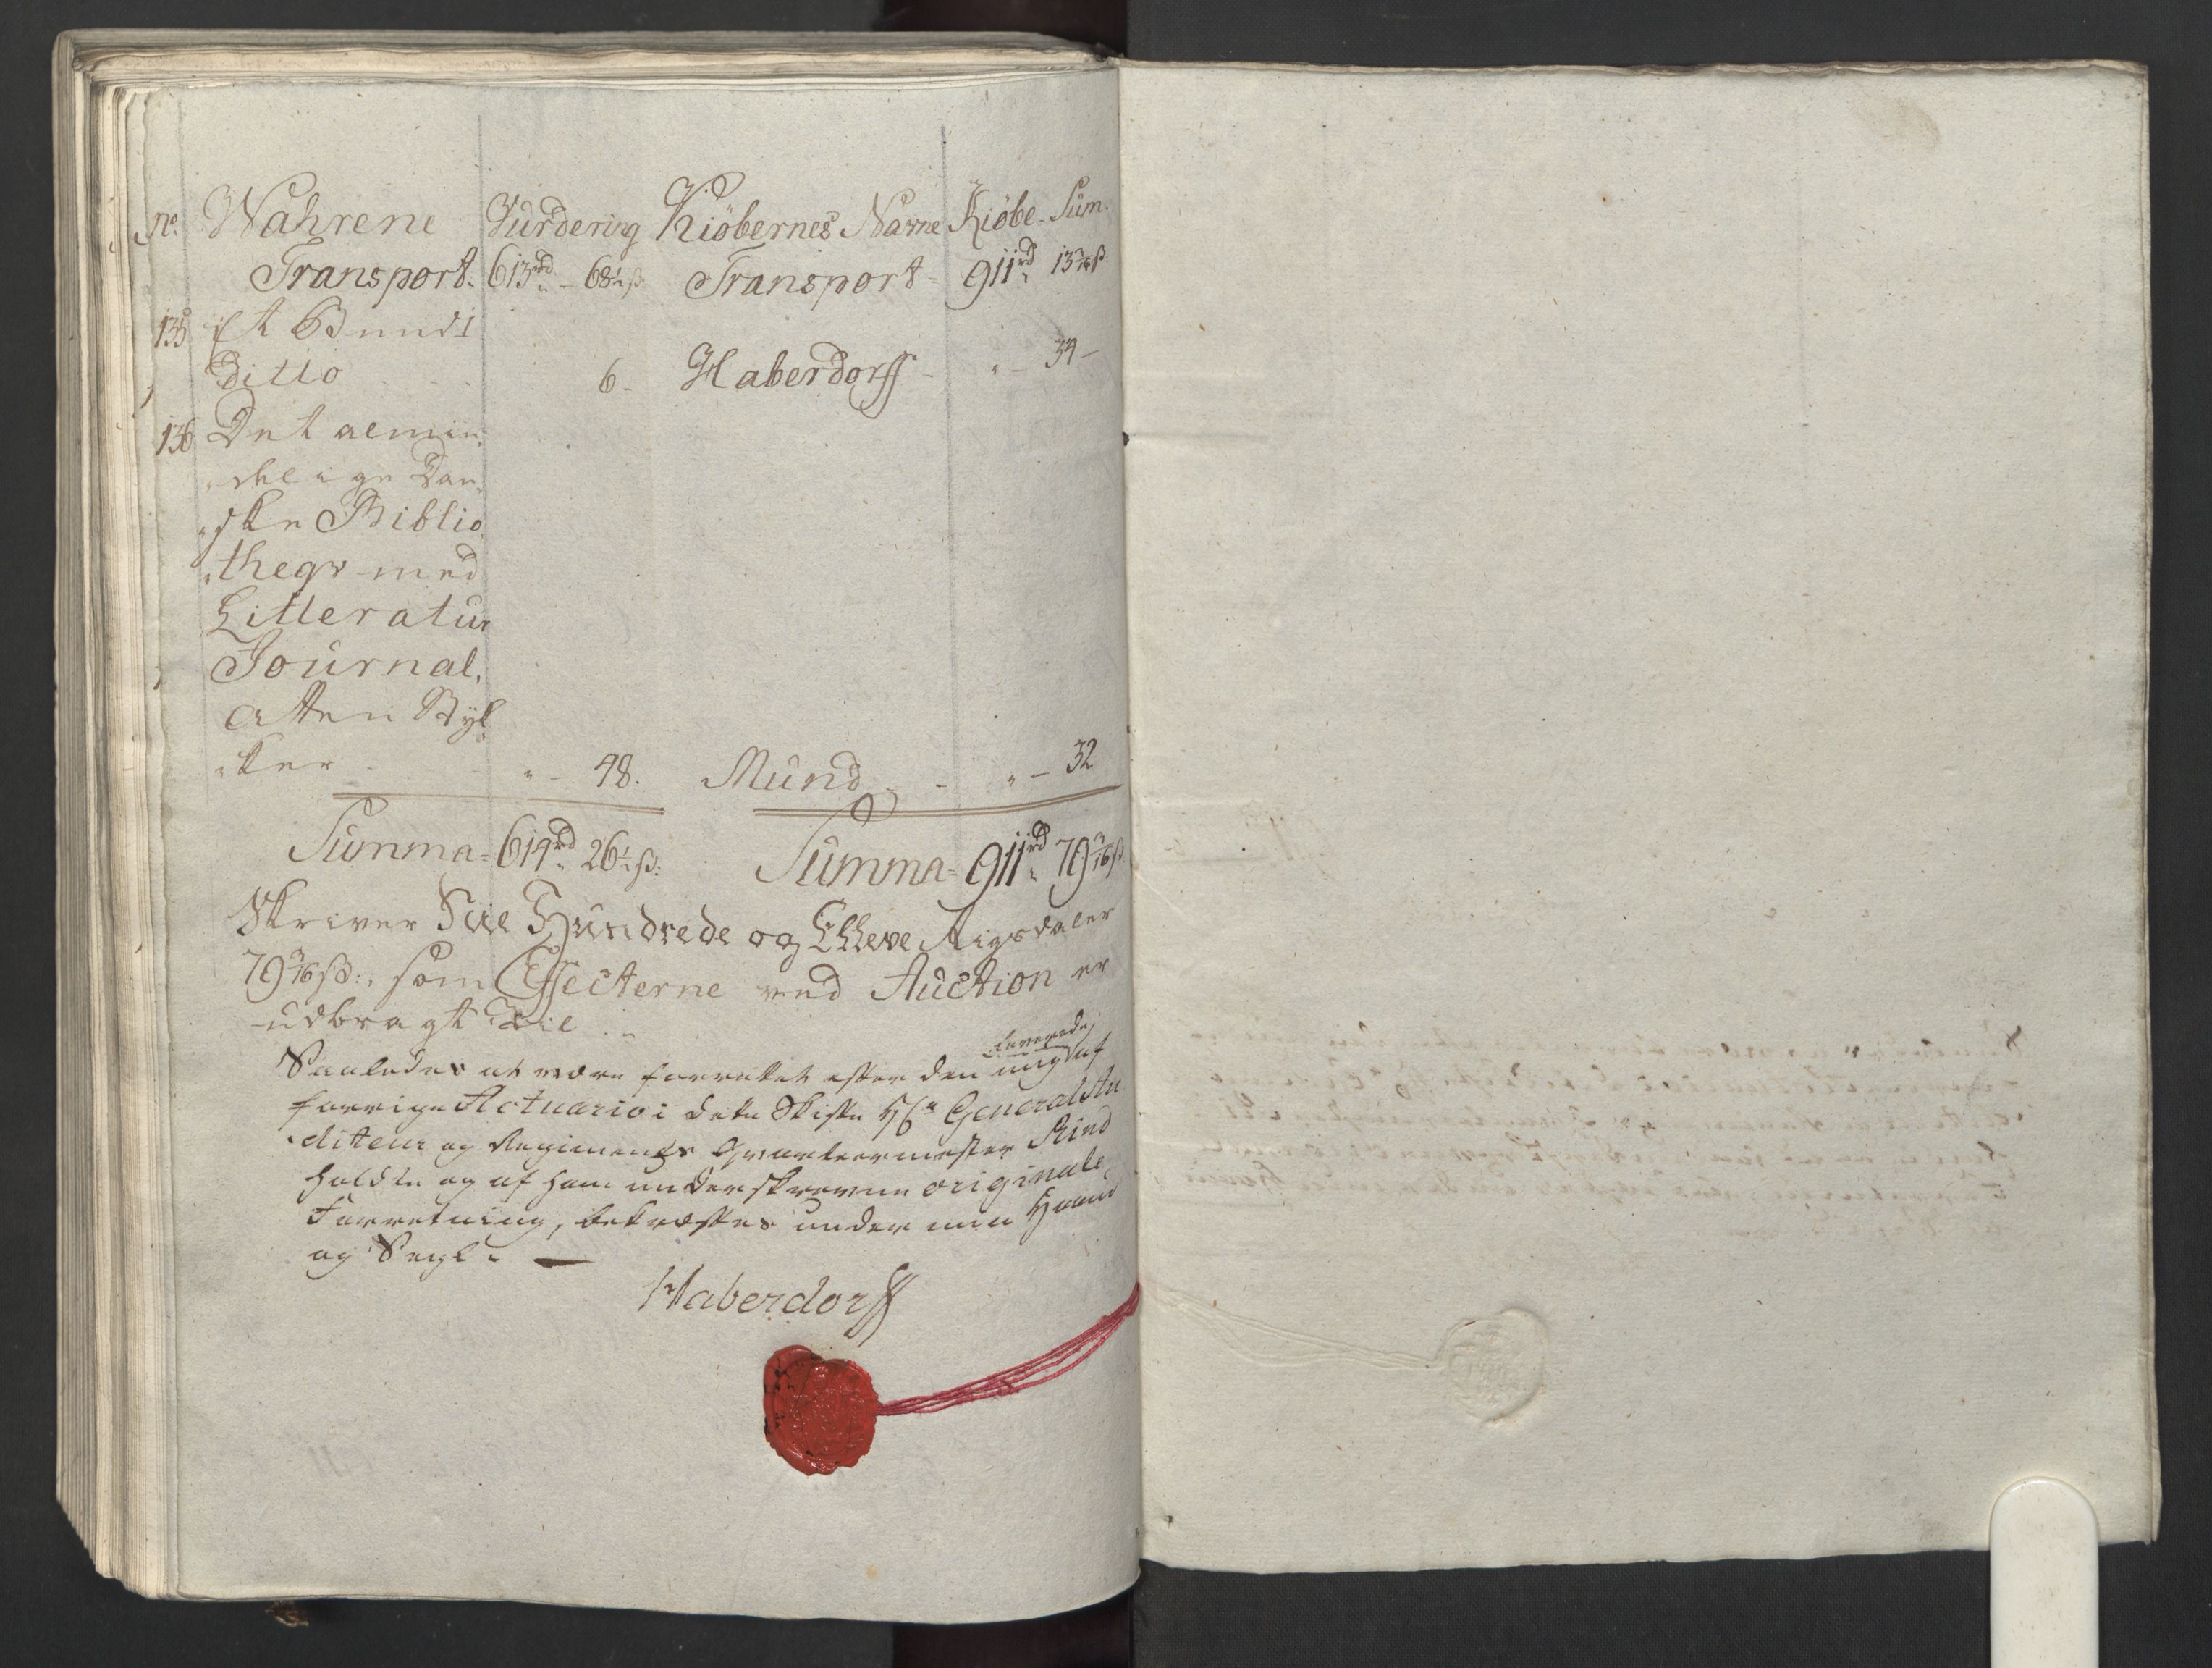 No. Wahrene Vurdering Kiöbernes Navne Kiöbe-Sum.
Transport. 613rd - 68½ß. Transport - 911rd 13 3/16ß
135 Et Bundt
Ditto 6 - Haberdorff - " - 34 -
136 Det almin
delige Dan
ske Biblio
theqs med
Litteratur
Journal,
Atten Styk
ker - " - 48. Mund - " - 32
Summa = 614rd 26½ß: Summa = 911rd 79 3/16ß
Skriver Nie Hundrede og Elleve Rigsdaler
79 3/16ß:, som Effecterne ved Auction er
udbragt til
Saaledes at være forrettet efter den mig af
leverede
forrige Actuario i dette Skifte Hr. General Au
diteur og Regiments Qvarteermester Rind
holdte og af ham underskrevne originale
Forretning, bekræftes under min Haand
og Segl. —
Haberdorff